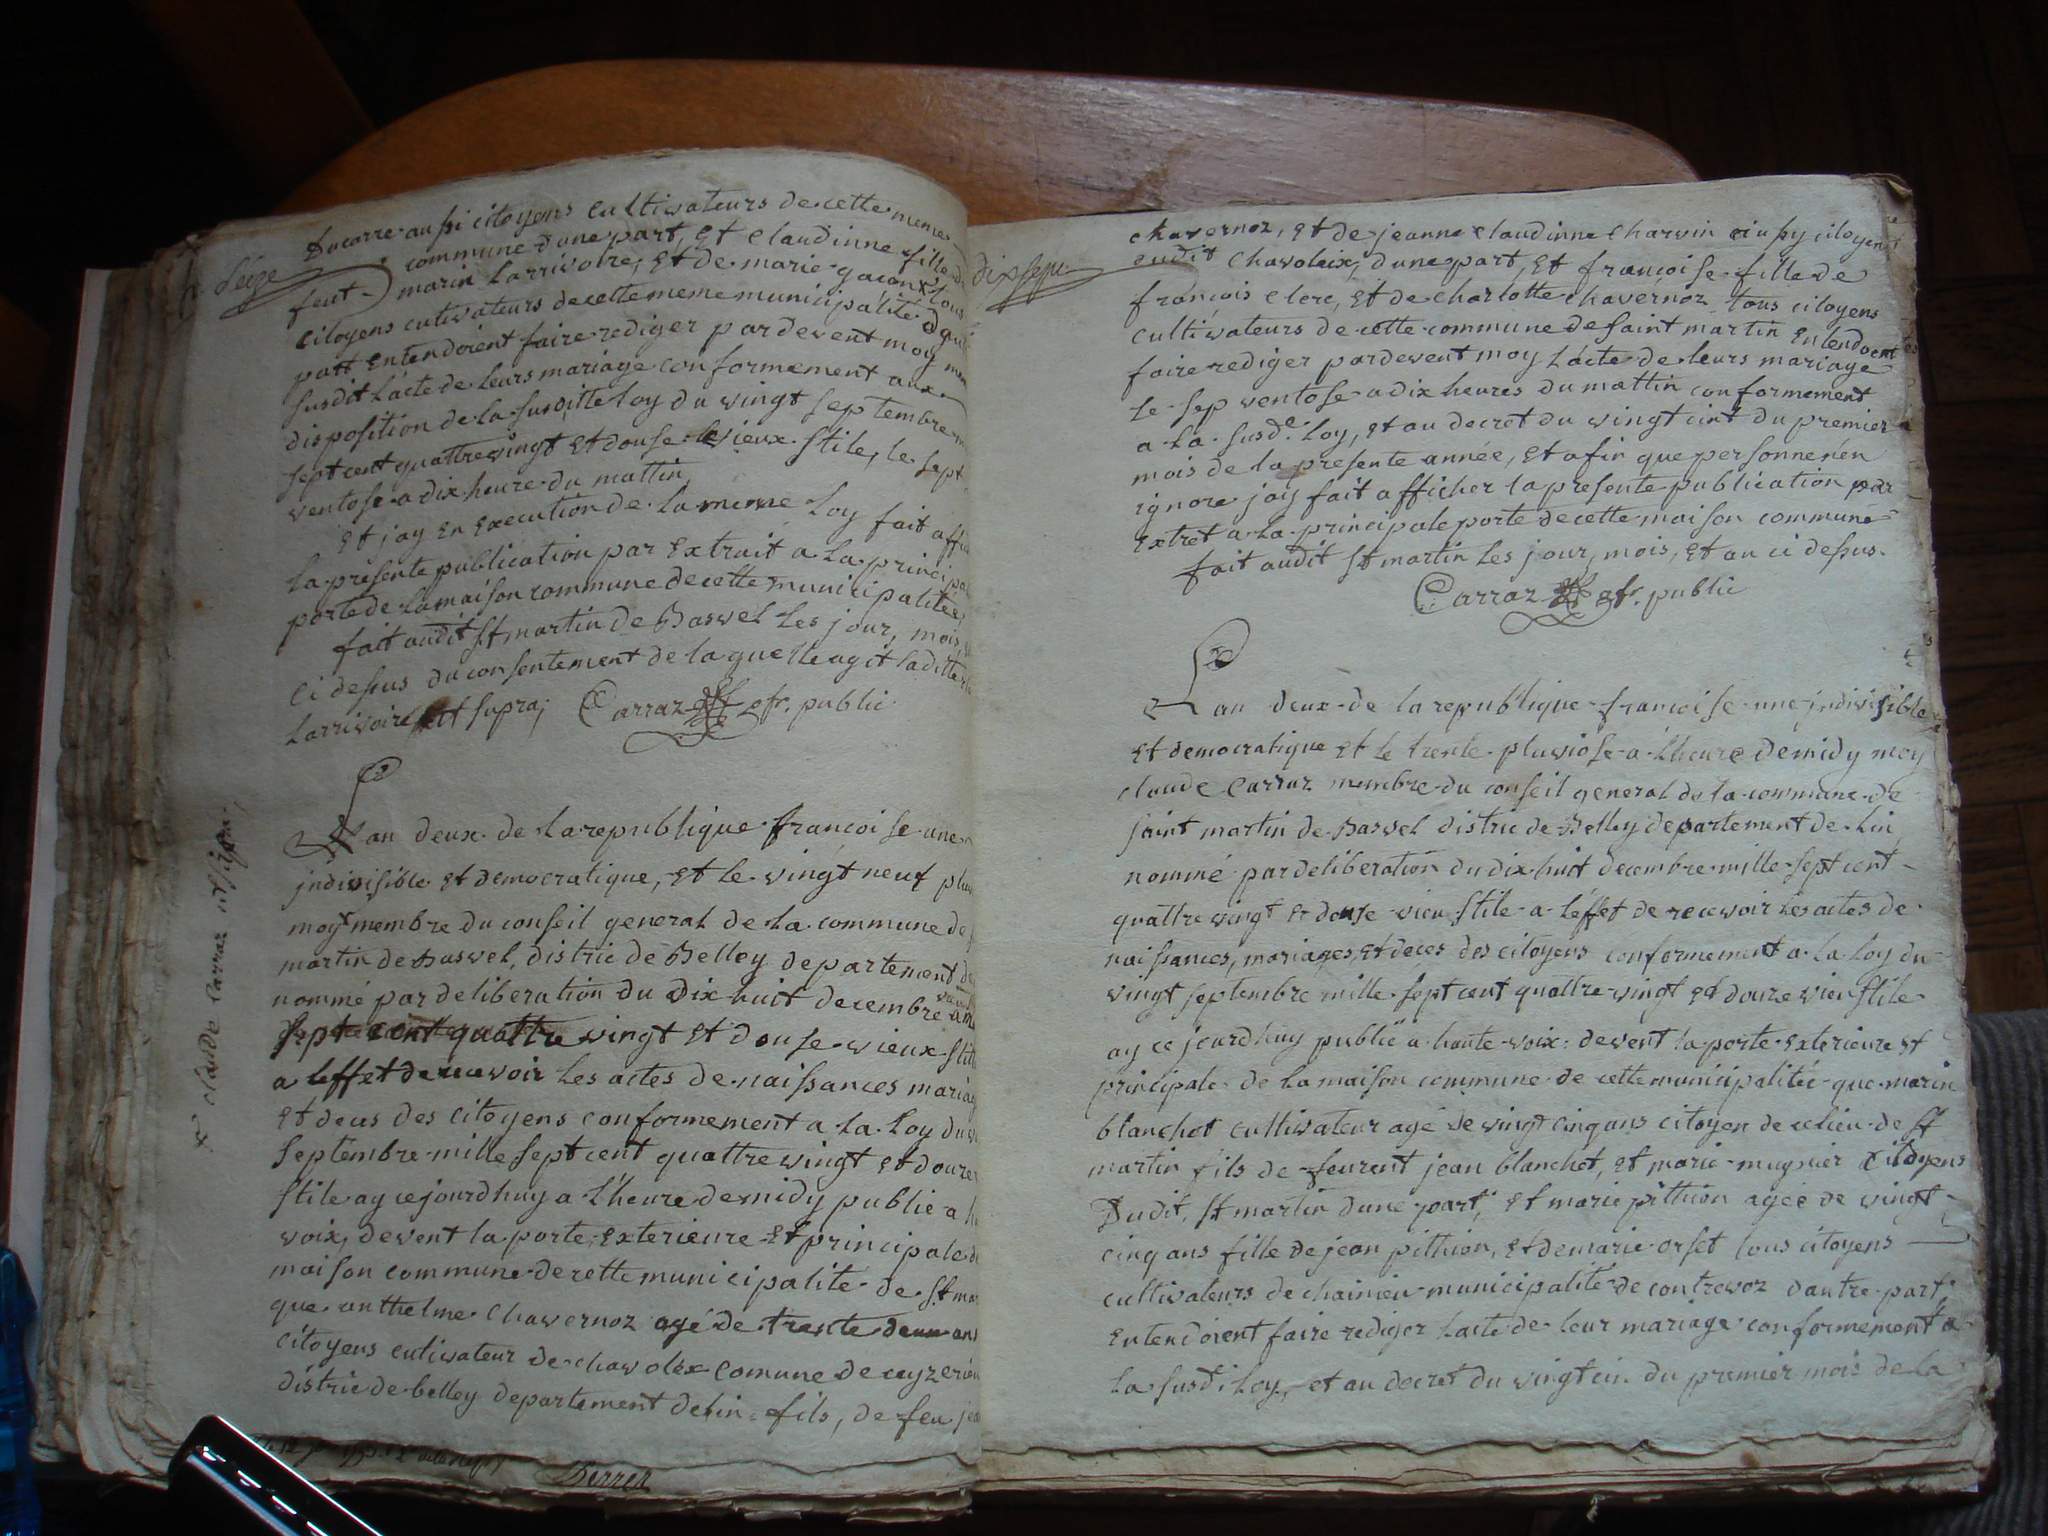 Ducarre aussi citoyens cultivateurs de cette meme
Séeze
commune dune part, Et Claudinne fille de
feut marin Larrivoire, Et de marie gacon tous
citoyens cutivateurs de cette meme municipalité
part Entendoient faire rediger pardevent moy
susdit Lacte de leurs mariage conformement aux
disposition de la susditte loy du vingt septembre
sept cent quattrevingt Et douse vieux stile, le sept
ventose a dix heure du mattin
Et jay En Execution de la meme Loy fait
la presente publication par Extrait a la
porte de la maison commune de cette municipalitée,
fait audit St martin De Bavvel Les jour, mois,
ci dessus du consentement de la quelle agit laditte
Larrivoire supra; Carraz ofr. public
Lan deux de la republique francoise une
jndivisible Et democratique, Et le vingt neuf
moy x membre du conseil general de la commune de
martin de Bavvel, distric de Belley departement
nommé par deliberation du dix huit decembre
sept cent quattre vingt Et douse vieux stile
a leffet de recevoir Les actes de naissances
Et deces des citoyens conformement a la Loy du
septembre mille sept cent quattre vingt Et douze
stile ay cejourdhuy a Lheure demidy publie a
voix, devent la porte Exterieure Et principale
maison commune de cette municipalité de St
que anthelme Chavernoz agé de trente deux ans
citoyens cutivateur de chavolex comune de ceyzerieu
distric de belley departement de lin fils, de feu
x claude Carraz
dixsept
chavernoz, Et de jeanne Claudinne Charvin aussy citoyens
audit Chavoleix, dune part, Et francoise fille de
francois Clerc, Et de Charlotte Chavernoz tous citoyens
cultivateurs de cette commune de saint martin Entendoent
faire rediger pardevent moy Lacte de leurs mariage
le sep ventose a dix heures du mattin conformement
a la susde. loy, Et au decret du vingt cint du premier
mois de la presente année, Et afin que personne nén
ignore jay fait afficher la presente publication par
Extret a la principale porte de cette maison commune
fait audit St martin les jour, mois, Et an ci dessus.
Carraz ofr. public
Lan deux de la republique francoise une jndivisible
Et democratique Et le trente pluviose a Lheure demidy moy
claude Carraz membre du conseil general de la commune de
saint martin de Bavvel distric de Belley departement de Lin
nommé par deliberation du dix huit decembre mille sept cent
quattre vingt Et douse vieu stile a léffet de recevoir Les actes de
naissances, mariages, Et deces des citoyens conformement a la Loy du
vingt septembre mille sept cent quattre vingt Et douze vieu stile
ay ce jourdhuy publié a haute voix devent la porte Exterieure Et
principale de la maison commune de cette municipalitée que marin
blanchet cultivateur agé de vingt cinq ans citoyen de ce lieu de St
martin fils de feu jean blanchet, Et marie mugnier citoyens
Dudit St martin dune part, Et marie pithion agée de vingt
cinq ans fille de jean pithion, Et de marie orset tous citoyens
cultivateurs de chainieu municipalité de contrevoz dautre part,
Entendoient faire rediger Lacte de leur mariage conformement a
la susde. loy, et au decret du vingt cin. du premier mois de la